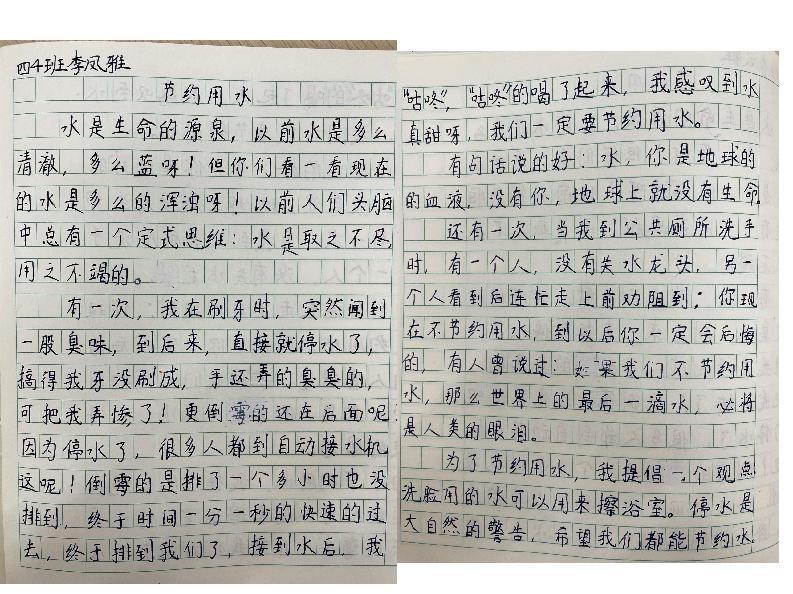 四4班李凤雅
节约用水
水是生命的源泉，以前水是多么
清澈，多么蓝呀！但你们看一看现在
的水是多么的浑浊呀！以前人们头脑
中总有一个定式思维：水是取之不尽，
用之不竭的。
有一次，我在刷牙时，突然闻到
一股臭味，到后来，直接就停水了，
搞得我牙没刷成，手还弄的臭臭的，
可把我弄惨了！更倒霉的还在后面呢
因为停水了，很多人都到自动接水机
这呢！倒霉的是排了一个多小时也没
排到，终于时间一分一秒的快速的过
去，终于排到我们了，接到水后，我
“咕咚”，“咕咚”的喝了起来，我感叹到水
真甜呀，我们一定要节约用水。
有句话说的好：水，你是地球的
的血液，没有你，地球上就没有生命。
还有一次，当我到公共厕所洗手
时，有一个人，没有关水龙头，另一
个人看到后连忙走上前劝阻到：你现
在不节约用水，到以后你一定会后悔
的，有人曾说过：如果我们不节约用
水，那么世界上的最后一滴水，必将
是人类的眼泪。
为了节约用水，我提倡一个观点
洗脸用的水可以用来擦浴室。停水是
大自然的警告，希望我们都能节约水